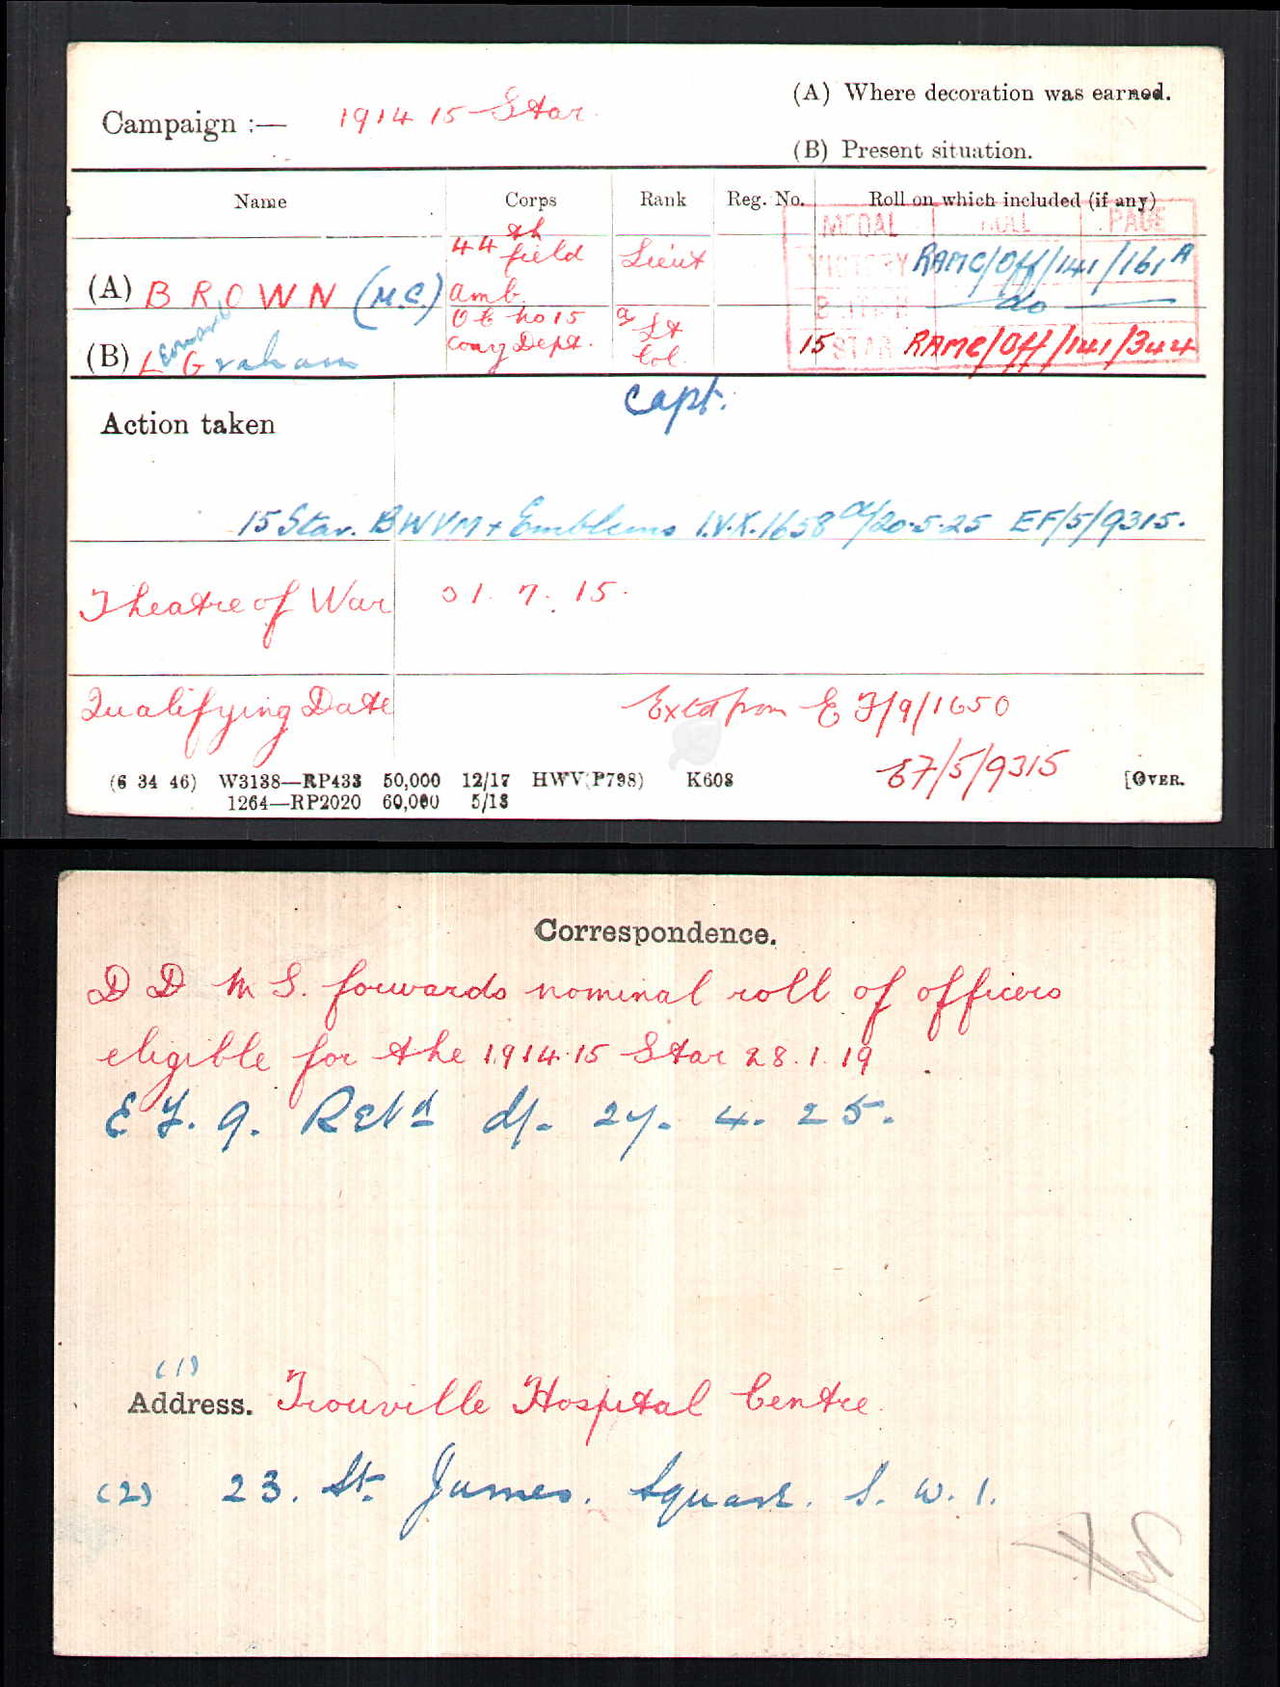 (A) Where decoration was earned.
Campaign :— 1914 15 Star.
(B) Present situation.
Name Corps Rank Reg. No. Roll on which included (if any)
MEDAL ROLL PAGE
44th field Lieut VICTORY RAMC/Off/141/161A
(A) BROWN (M.C) Amb.
BRITISH do
OC No 15 a/Lt
(B) Leonard Graham Conv Dept. Col. 15 STAR RAMC/Off/141/344
Capt.
Action taken
15 Star. BWVM + Emblems I.V.X.1658 a/20.5.25 EF/5/9315.
Theatre of War 31. 7. 15.
Qualifying Date Extd from E F/9/1650
EF/5/9315
(6 34 46) W3138—RP433 50,000 12/17 HWV(P798) K608 [OVER.
1264—RP2020 60,000 5/18
Correspondence.
D D M S. forwards nominal roll of officers
eligible for the 1914.15 Star 28.1.19
E F. 9. Retd d/- 27. 4. 25.
(1)
Address. Trouville Hospital Centre.
(2) 23. St. James. Square. S. W. 1.